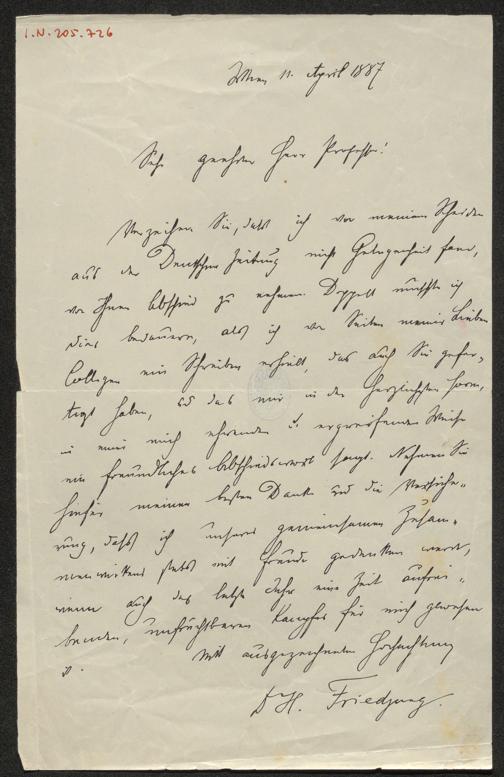 I.N. 205.726
Wien 11. April 1887
Sehr geehrter Herr Professor!
Verzeihen Sie, dass ich vor meinem Scheiden
aus der Deutschen Zeitung nicht Gelegenheit fand,
von Ihnen Abschied zu nehmen. Doppelt musste ich
dies bedauern, als ich von Seiten meiner lieben
Collegen ein Schreiben erhielt, das auch Sie gefer-
tigt haben, und das mir in der herzlichsten Form,
in einer mich ehrenden u. ergreifenden Weise
ein freundliches Abschiedswort sagt. Nehmen Sie
hiefür meinen besten Dank und die Versiche-
rung, dass ich unseres gemeinsamen Zusam-
menwirkens stets mit Freude gedenken werde,
wenn auch das letzte Jahr eine Zeit aufrei-
benden, unfruchtbaren Kampfes für mich gewesen
ist.
Mit ausgezeichneter Hochachtung
Dr H. Friedjung.